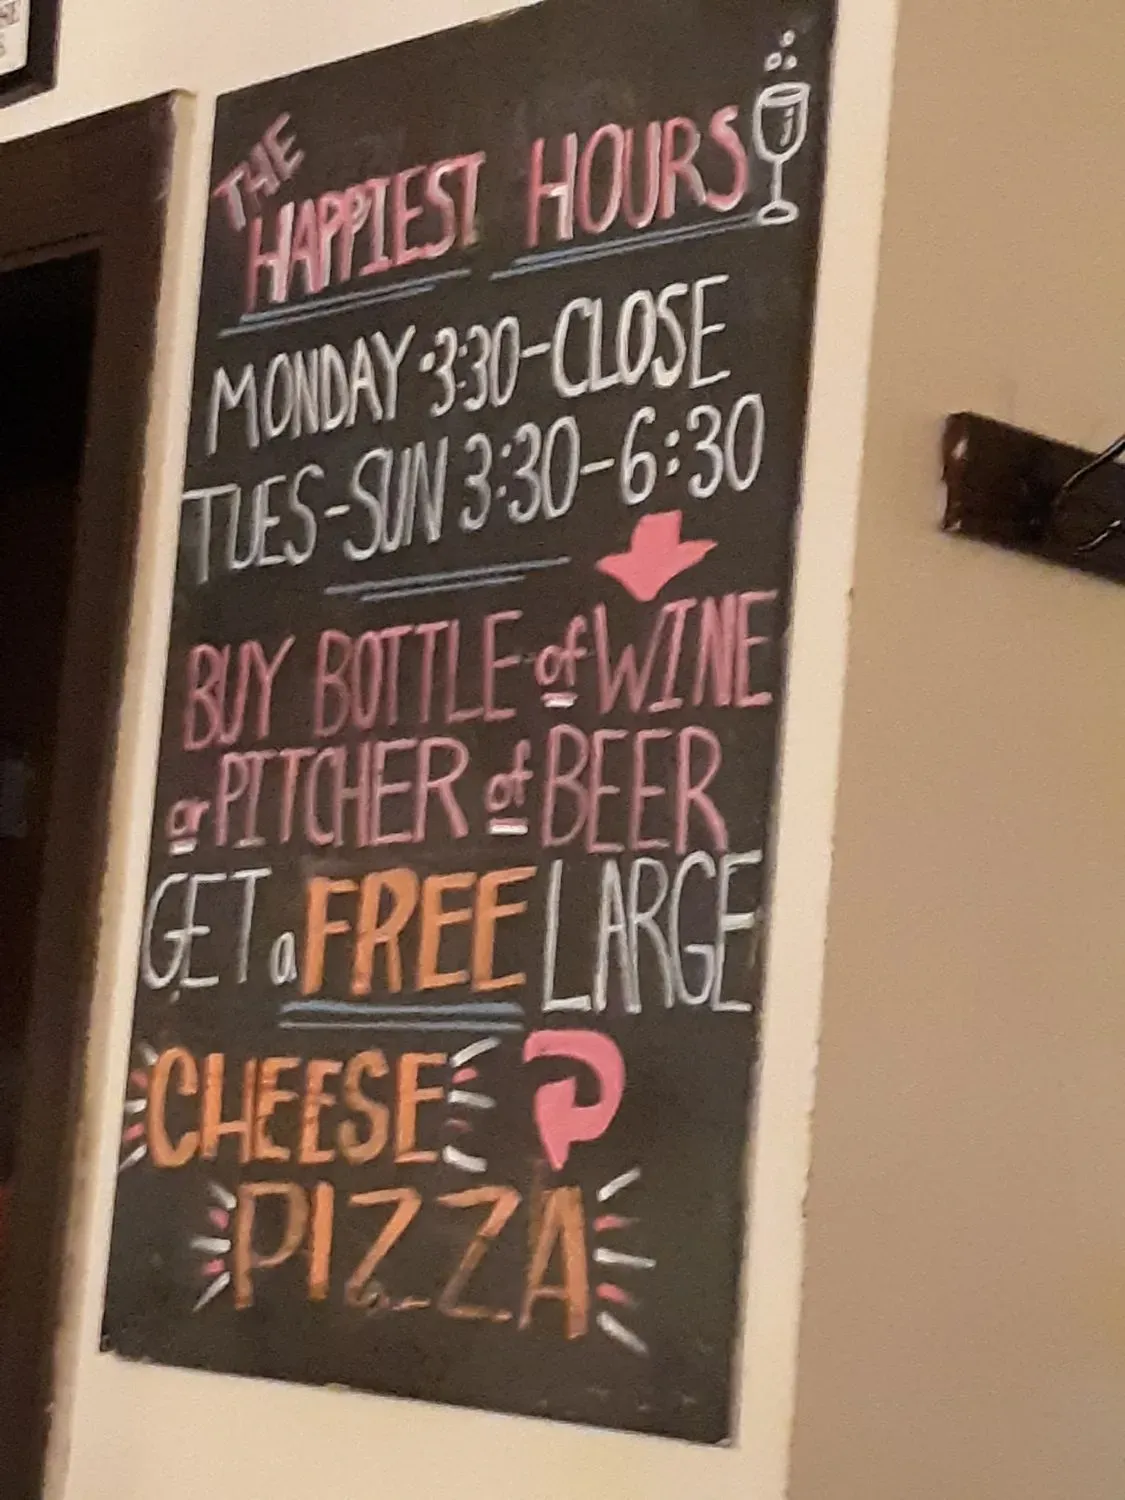 THE
HAPPIEST HOURS
MONDAY 3:30-CLOSE
TUES-SUN 3:30-6:30
BUY BOTTLE of WINE
or PITCHER of BEER
GET a FREE LARGE
CHEESE
PIZZA